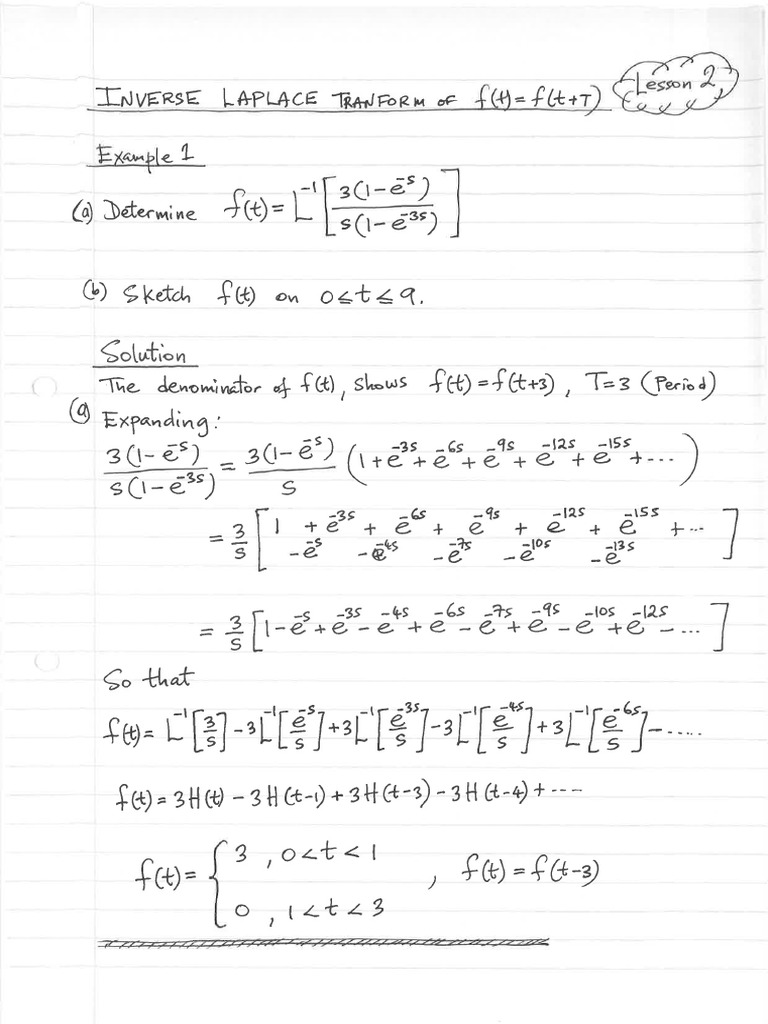 INVERSE LAPLACE TRANFORM OF f(t)=f(t+T) Lesson 2
Example 1
(a) Determine f(t)= L⁻¹[3(1-e⁻ˢ)/s(1-e⁻³ˢ)]
(b) Sketch f(t) on 0≤t≤9.
Solution
The denominator of f(t), shows f(t)=f(t+3), T=3 (Period)
(a) Expanding:
3(1-e⁻ˢ)/s(1-e⁻³ˢ) = 3(1-e⁻ˢ)/s (1+e⁻³ˢ+e⁻⁶ˢ+e⁻⁹ˢ+e⁻¹²ˢ+e⁻¹⁵ˢ+...)
= 3/s [1 + e⁻³ˢ + e⁻⁶ˢ + e⁻⁹ˢ + e⁻¹²ˢ + e⁻¹⁵ˢ + ...
-e⁻ˢ -e⁻⁴ˢ -e⁻⁷ˢ -e⁻¹⁰ˢ -e⁻¹³ˢ]
= 3/s [1-e⁻ˢ+e⁻³ˢ-e⁻⁴ˢ+e⁻⁶ˢ-e⁻⁷ˢ+e⁻⁹ˢ-e⁻¹⁰ˢ+e⁻¹²ˢ-...]
So that
f(t)= L⁻¹[3/s]-3L⁻¹[e⁻ˢ/s]+3L⁻¹[e⁻³ˢ/s]-3L⁻¹[e⁻⁴ˢ/s]+3L⁻¹[e⁻⁶ˢ/s]-.....
f(t)=3H(t)-3H(t-1)+3H(t-3)-3H(t-4)+----
f(t)= { 3, 0<t<1
0, 1<t<3 , f(t)=f(t-3)